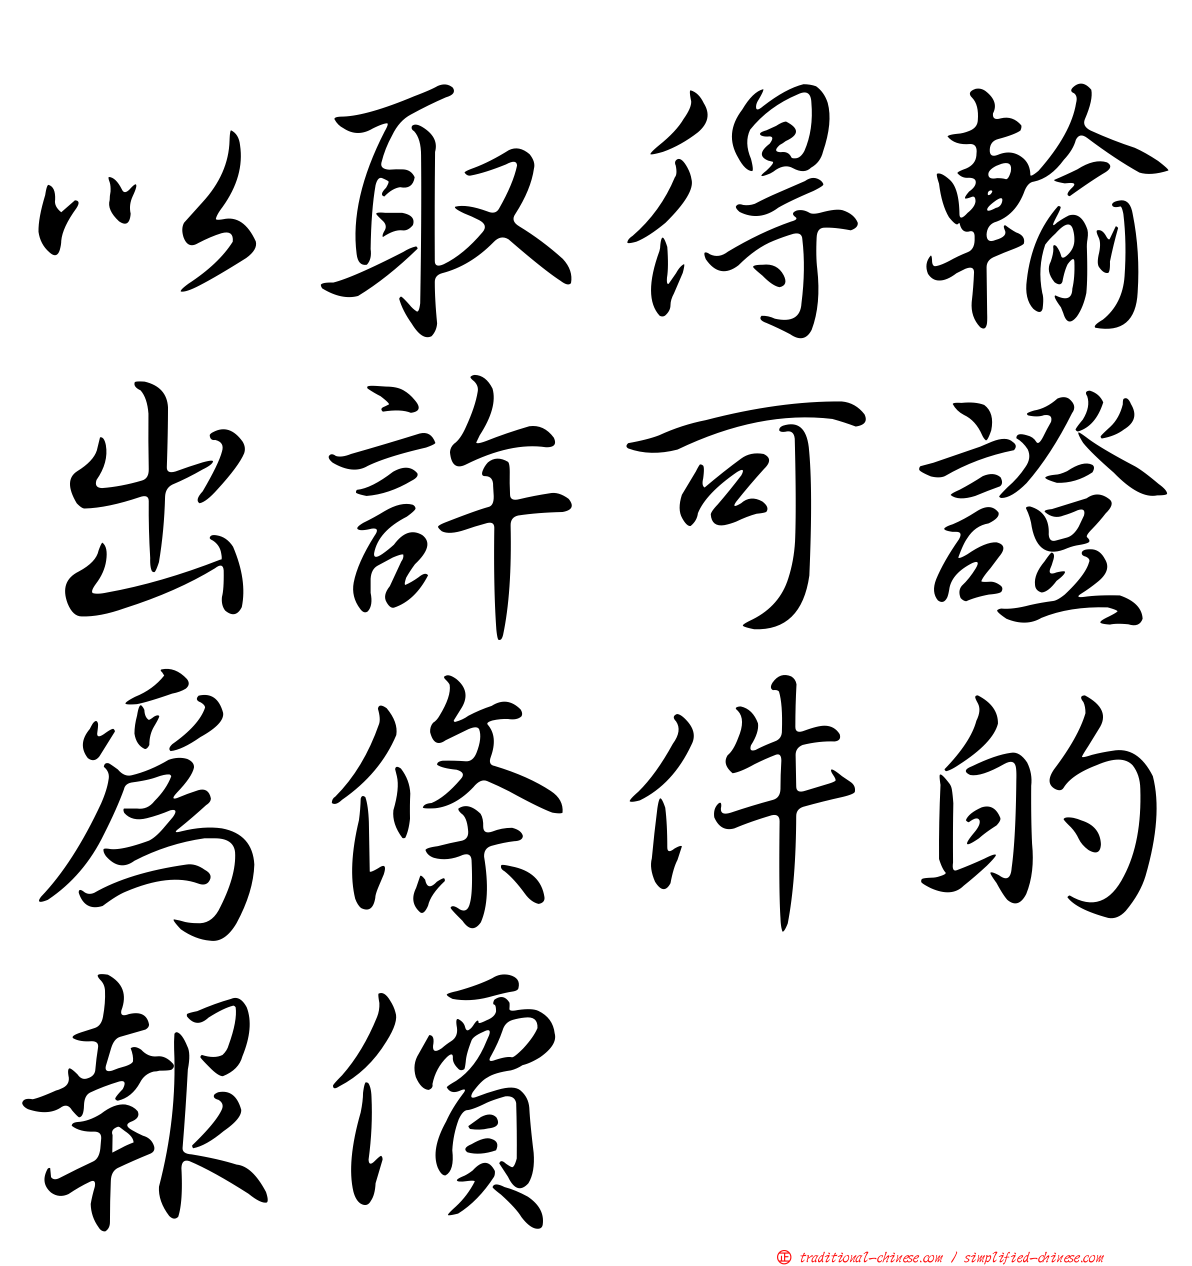 以取得輸
出許可證
爲條件的
報價
正 traditional-chinese.com / simplified-chinese.com